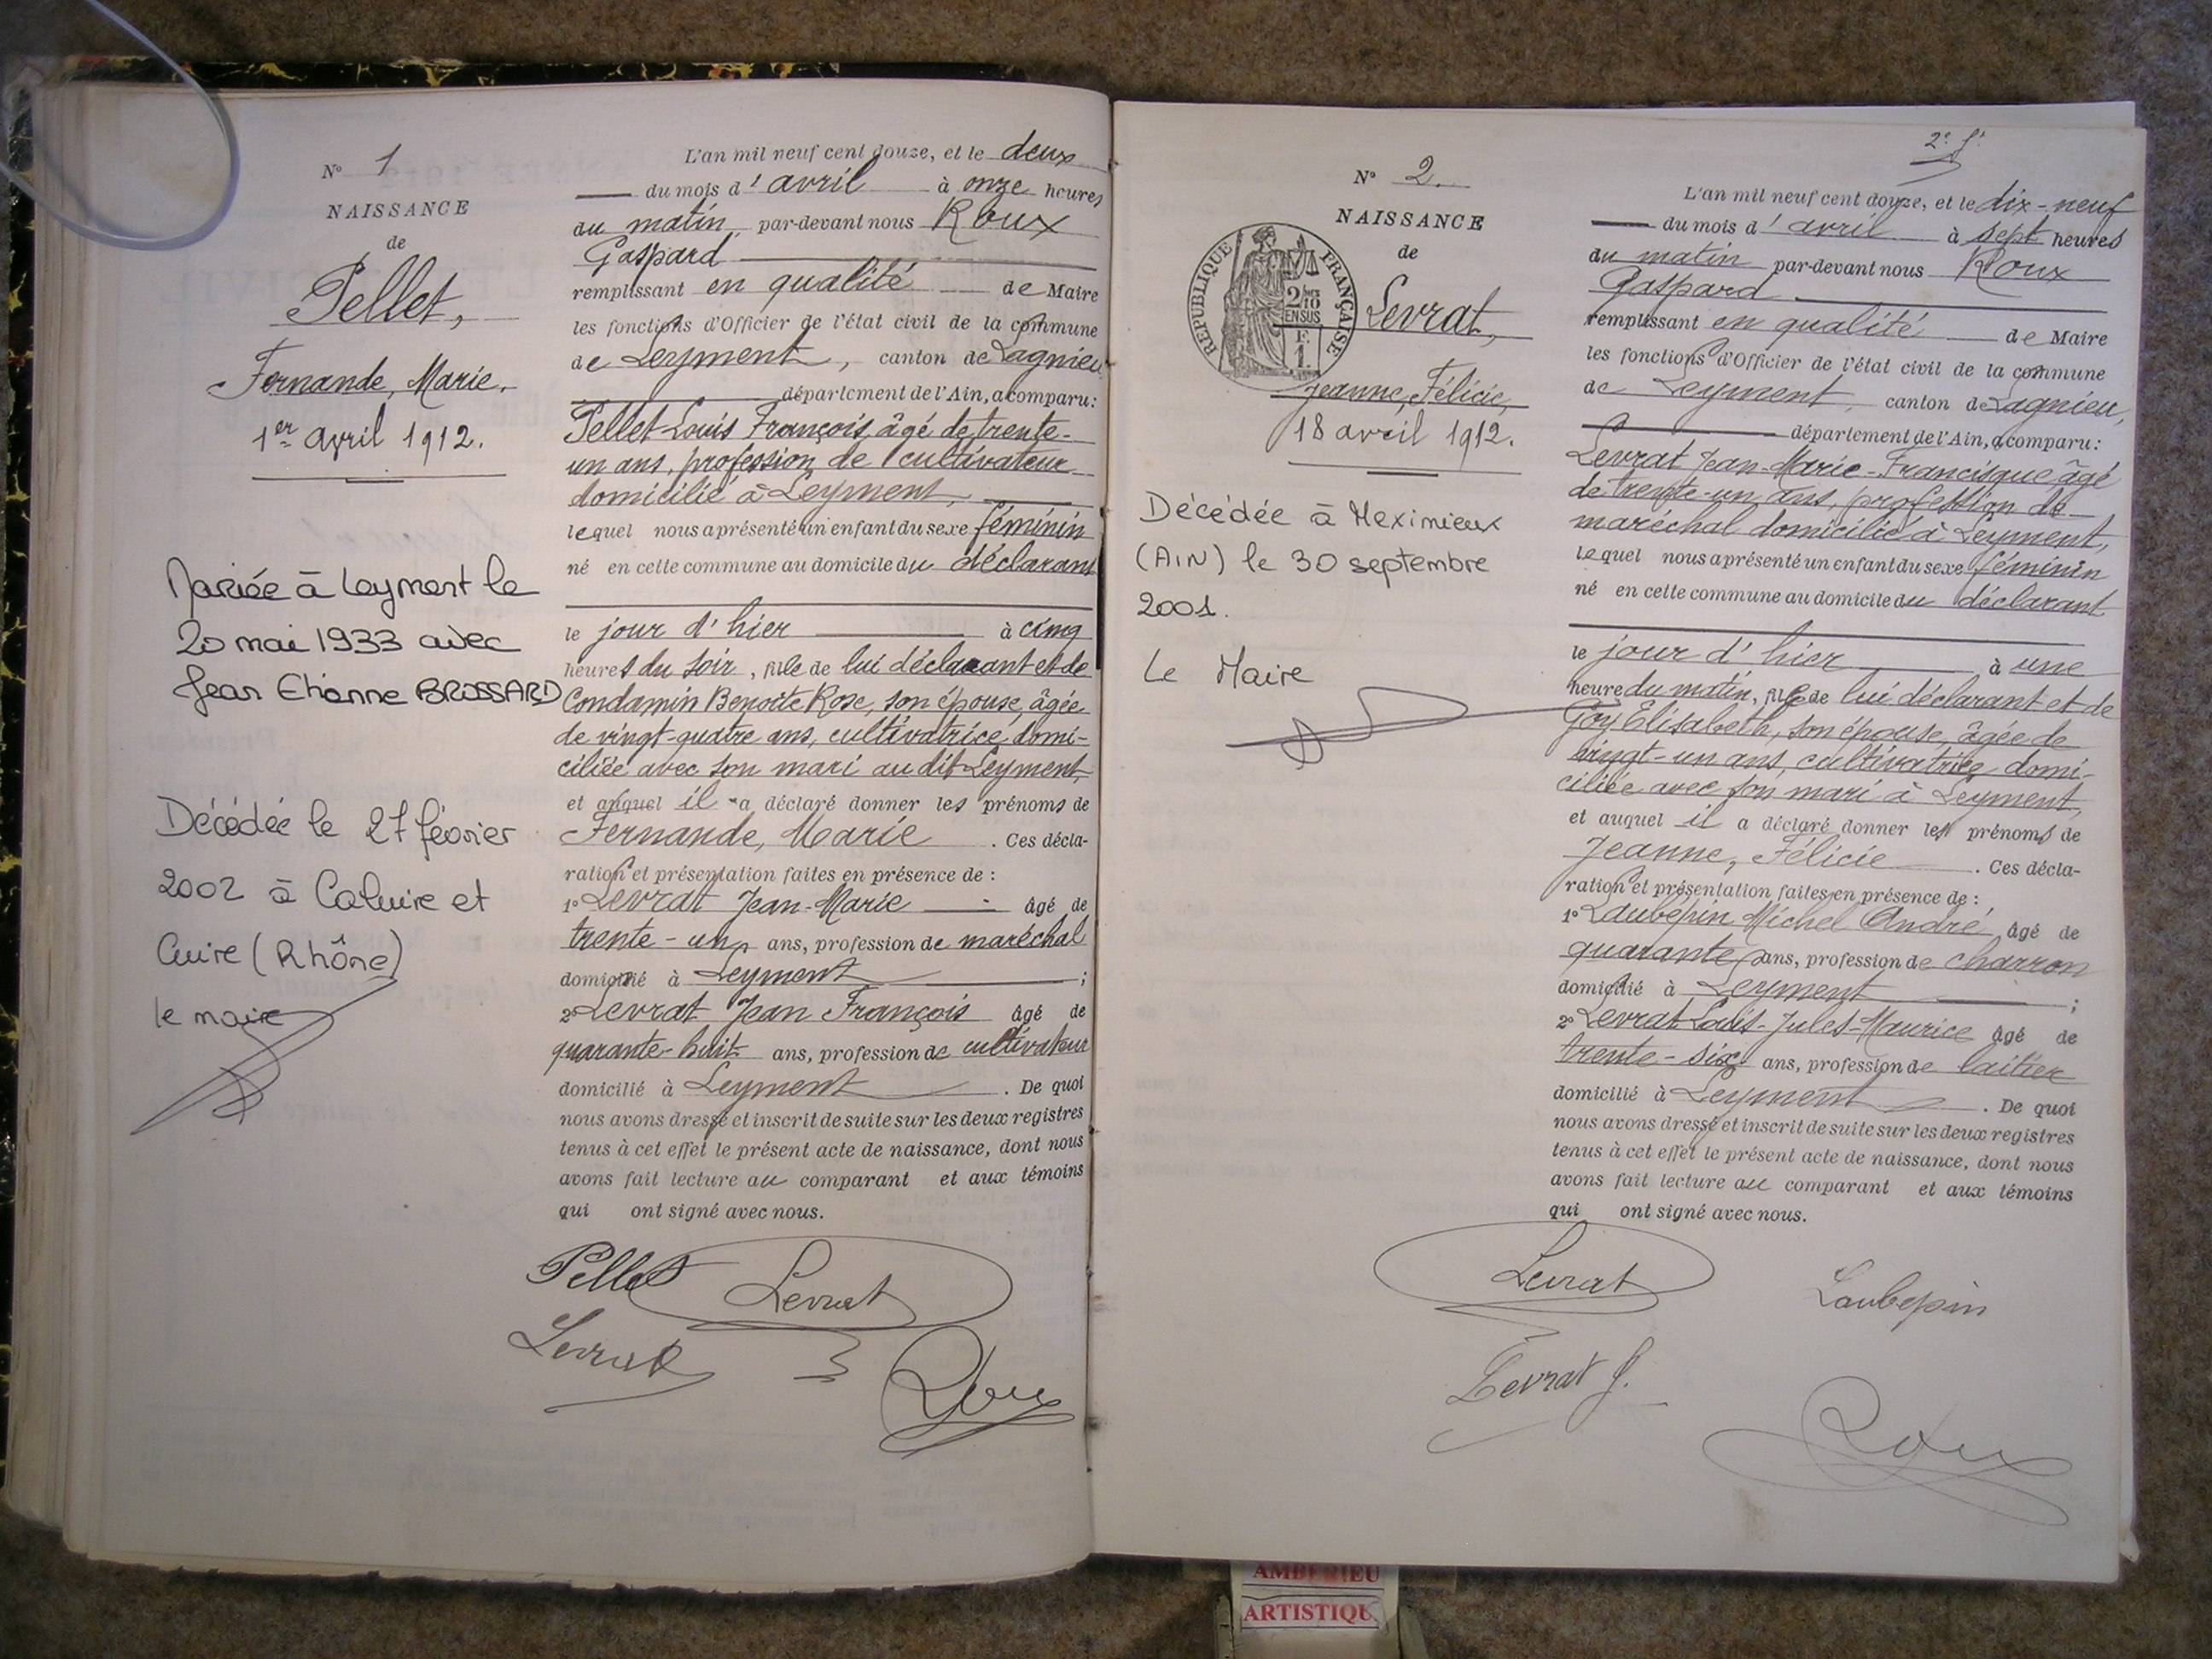 N° 1
NAISSANCE
de
Pellet,
Fernande, Marie.
1er avril 1912.
Mariée à Leyment le
20 mai 1933 avec
Jean Etienne BROSSARD
Décédée le 27 février
2002 à Caluire et
Cuire (Rhône)
le maire
L'an mil neuf cent douze, et le deux
du mois d'avril à onze heures
du matin, par-devant nous Roux
Gaspard
remplissant en qualité de Maire
les fonctions d'Officier de l'état civil de la commune
de Leyment, canton de Lagnieu
département de l'Ain, a comparu:
Pellet Louis François, âgé de trente-
un ans, profession de cultivateur
domicilié à Leyment,
lequel nous a présenté un enfant du sexe féminin
né en cette commune au domicile du déclarant
le jour d'hier à cinq
heures du soir, fille de lui déclarant et de
Condamin Benoîte Rose, son épouse, âgée
de vingt-quatre ans, cultivatrice domi-
ciliée avec son mari au dit Leyment,
et auquel il a déclaré donner les prénoms de
Fernande, Marie. Ces décla-
ration et présentation faites en présence de :
1° Levrat Jean-Marie âgé de
trente-un ans, profession de maréchal
domicilié à Leyment ;
2° Levrat Jean François âgé de
quarante-huit ans, profession de cultivateur
domicilié à Leyment. De quoi
nous avons dressé et inscrit de suite sur les deux registres
tenus à cet effet le présent acte de naissance, dont nous
avons fait lecture au comparant et aux témoins
qui ont signé avec nous.
Pellet Levrat
Levrat
Roux
2e f.
N° 2.
NAISSANCE
de
REPUBLIQUE FRANÇAISE
2/10
EN SUS
F.
1.
Levrat,
Jeanne, Félicie,
18 avril 1912.
Décédée à Meximieux
(AIN) le 30 septembre
2001.
Le Maire
L'an mil neuf cent douze, et le dix-neuf
du mois d'avril à sept heures
du matin par-devant nous Roux
Gaspard
remplissant en qualité de Maire
les fonctions d'Officier de l'état civil de la commune
de Leyment, canton de Lagnieu,
département de l'Ain, a comparu:
Levrat Jean-Marie-Francisque âgé
de trente-un ans, profession de
maréchal domicilié à Leyment,
lequel nous a présenté un enfant du sexe féminin
né en cette commune au domicile du déclarant
le jour d'hier à une
heure du matin, fille de lui déclarant et de
Goy Elisabeth, son épouse, âgée de
vingt-un ans, cultivatrice domi-
ciliée avec son mari à Leyment,
et auquel il a déclaré donner les prénoms de
Jeanne, Félicie. Ces décla-
ration et présentation faites en présence de :
1° Laubepin Michel André âgé de
quarante ans, profession de charron
domicilié à Leyment ;
2° Levrat Louis-Jules-Maurice âgé de
trente-six ans, profession de laitier
domicilié à Leyment. De quoi
nous avons dressé et inscrit de suite sur les deux registres
tenus à cet effet le présent acte de naissance, dont nous
avons fait lecture au comparant et aux témoins
qui ont signé avec nous.
Levrat Laubepin
Levrat J.
Roux
AMBERIEU
ARTISTIQU